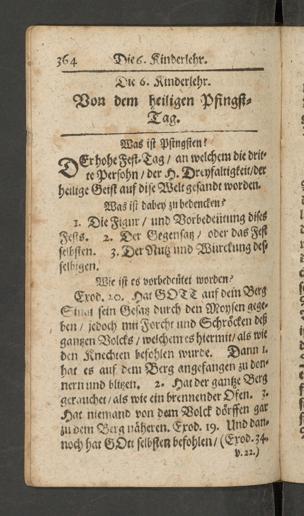 364 Die 6. Kinderlehr.
Die 6. Kinderlehr.
Von dem heiligen Pfingst-
Tag.
Was ist Pfingsten?
DEr hohe Fest-Tag / an welchem die drit-
te Persohn / der H. Dreyfaltigkeit / der
heilige Geist auf dise Welt gesandt worden.
Was ist dabey zu bedencken?
1. Die Figur / und Vorbedeütung dises
Fests. 2. Der Gegensatz / oder das Fest
selbsten. 3. Der Nutz und Würckung des-
selbigen.
Wie ist es vorbedeütet worden?
Exod. 20. Hat GOTT auf dem Berg
Sinai sein Gesatz durch den Moysen gege-
ben / jedoch mit Forcht und Schröcken deß
gantzen Volcks / welchem es hiermit / als wie
den Knechten befohlen wurde. Dann 1.
hat es auf dem Berg angefangen zu don-
nern und blitzen. 2. Hat der gantze Berg
gerauchet / als wie ein brennender Ofen. 3.
Hat niemand von dem Volck dörffen gar
zu dem Berg näheren. Exod. 19. Und dan-
noch hat GOtt selbsten befohlen / (Exod. 34.
v. 22.)